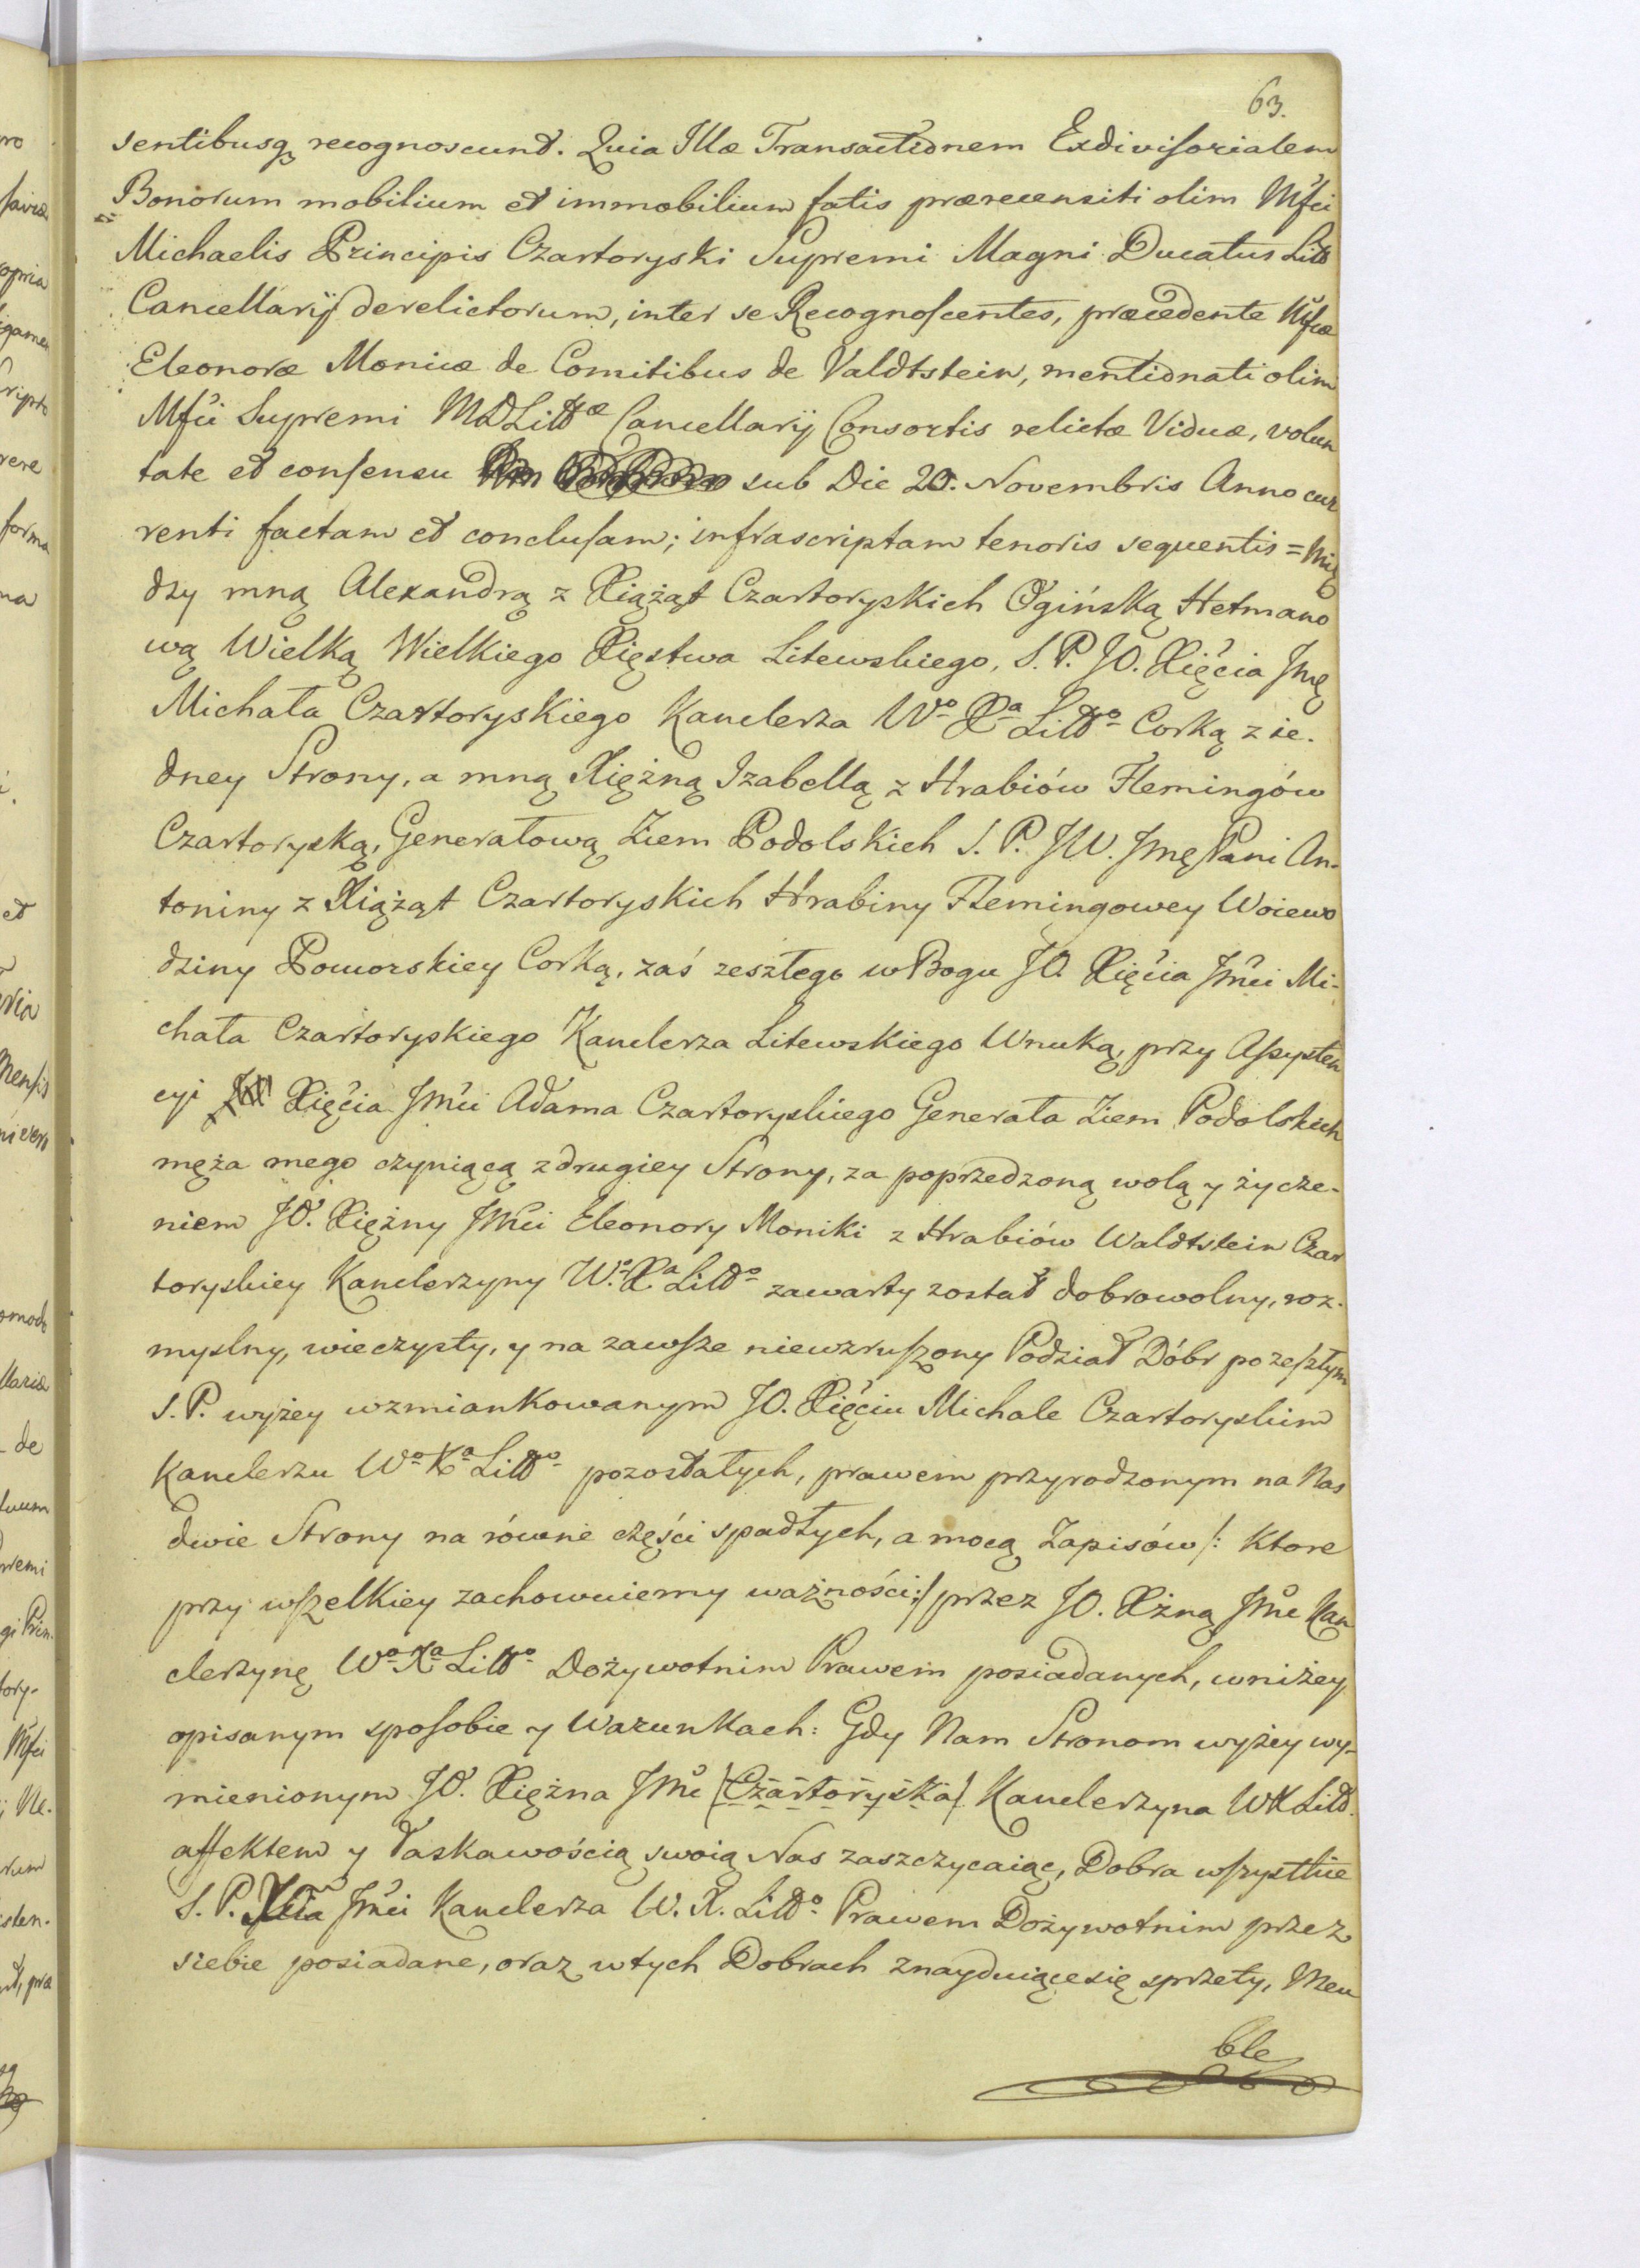 63.
sentibusq₃ recognoscunt. Quia Illæ Transactionem Exdivisorialem
Bonorum mobilium et immobilium fatis præreccensiti olim Mfci
Michaelis Principis Czartoryski Supremi Magni Ducatus Litt
Cancellarij derelictorum, inter se Recognoscentes, præcedente Mfcæ
Eleonoræ Monicæ de Comitibus de Valdtstein, mentionati olim
Mfci Supremi MDLittæ Cancellarij Consortis relictæ Viduæ, volun
tate et consensu sub Die 20. Novembris Anno cur
renti factam et conclusam; infrascriptam tenoris sequentis = Mię
dzy mną Alexandrą z Xiążąt Czartoryskich Ogińską Hetmano
wą Wielką Wielkiego Xięstwa Litewskiego, S. P. JO. Xięcia Jmę
Michała Czartoryskiego Kanclerza Wo Xa Litto Corką z ie.
dney Strony, a mną Xiężną Izabellą z Hrabiów Flemingów
Czartoryską, Generałową Ziem Podolskich S. P. JW. Jmę Pani An-
toniny z Xiążąt Czartoryskich Hrabiny Flemingowey Woiewo
dziny Pomorskiey Corką, zaś zeszłego w Bogu JO. Xięcia Jmci Mi-
chała Czartoryskiego Kanclerza Litewskiego Wnuką, przy Assysten
cyi Xięcia Jmci Adama Czartoryskiego Generała Ziem Podolskich
męża mego czyniącą z drugiey Strony, za poprzedzoną wolą y życze-
niem JO. Xiężny Jmci Eleonory Moniki z Hrabiów Waldtstein Czar
toryskiey Kanclerzyny W.o X.a Litto zawarty został dobrowolny, roz-
myslny, wieczysty, y na zawsze niewzruszony Podział Dóbr po zeszłym
S. P. wyżey wzmiankowanym JO. Xięciu Michale Czartoryskim
Kanclerzu Wo Xa Litto pozostałych, prawem przyrodzonym na Nas
dwie Strony na równe części spadłych, a mocą Zapisów /: Ktore
przy wszelkiey zachowuiemy ważności :/ przez JO. Xżną Jmc Kan
clerzynę Wo Xa Litto Dożywotnim Prawem posiadanych, wniżey
opisanym sposobie y Warunkach: Gdy Nam Stronom wyżey wy-
mienionym JO. Xiężna Jmc (Czartoryska) Kanclerzyna WX Litt.
affektem y łaskawością swoią Nas zaszczycaiąc, Dobra wszystkie
S. P. Jmci Kanclerza W. X. Litto Prawem Dożywotnim przez
siebie posiadane, oraz w tych Dobrach znayduiące się sprzety, Meu
ble